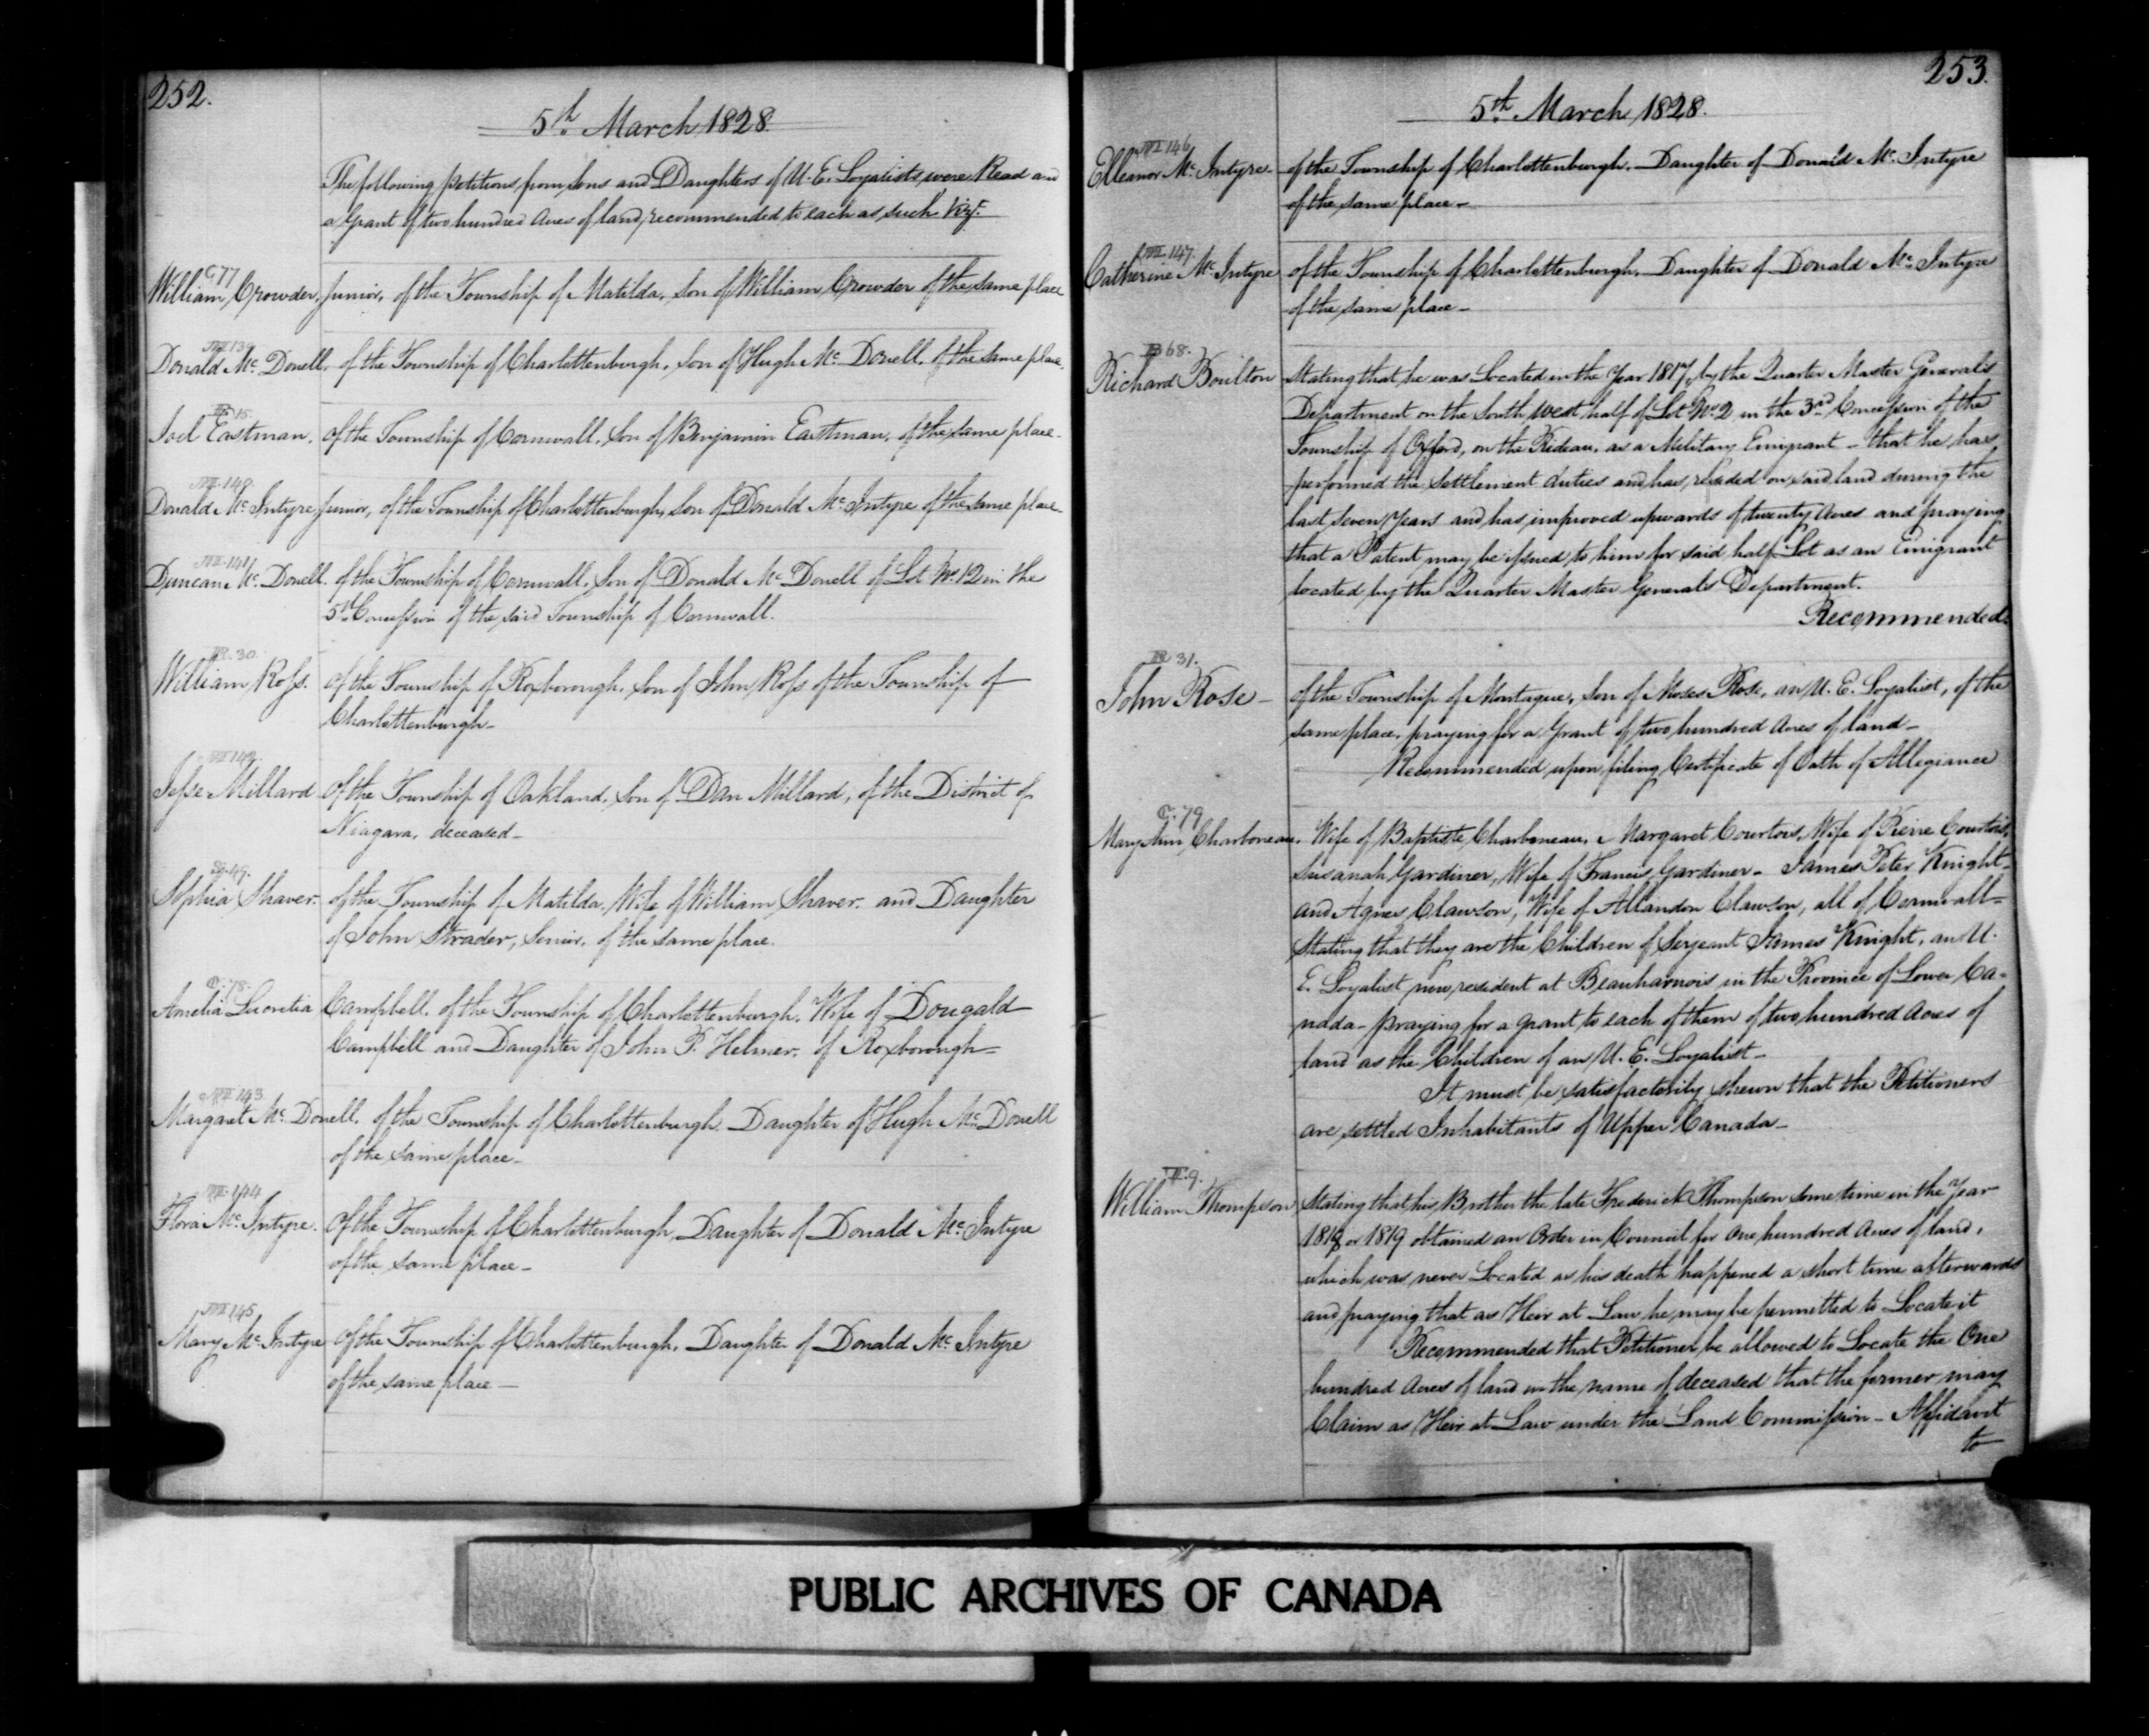 252.
5th March 1828.
The following petitions from Sons and Daughters of U. E. Loyalists were Read and
a Grant of two hundred Acres of land recommended to each as such Vizt.
C 77
William Crowder, junior, of the Township of Matilda, Son of William Crowder of the same place
Donald Mc Donell. of the Township of Charlottenburgh, Son of Hugh Mc Donell, of the same place.
E. 15.
Joel Eastman. of the Township of Cornwall, Son of Benjamin Eastman, of the same place.
M. 148.
Donald Mc Intyre junior, of the Township of Charlottenburgh, Son of Donald Mc Intyre of the same place
M. 141
Duncan Mc Donell. of the Township of Cornwall, Son of Donald Mc Donell of Lot No. 12 in the
5th Concession of the said Township of Cornwall.
R. 30.
William Ross. of the Township of Roxborough, Son of John Ross of the Township of
Charlottenburgh-
Jesse Millard of the Township of Oakland, Son of Dan Millard, of the District of
Niagara, deceased-
S. 49.
Sophia Shaver. of the Township of Matilda, Wife of William Shaver. and Daughter
of John Strader, Senior, of the same place.
C. 78.
Amelia Lucretia Campbell. of the Township of Charlottenburgh, Wife of Dougald
Campbell and Daughter of John P. Helmer, of Roxborough-
M 143
Margaret Mc Donell. of the Township of Charlottenburgh Daughter of Hugh Mc Donell
of the same place-
M. 144
Flora Mc Intyre. of the Township of Charlottenburgh, Daughter of Donald Mc Intyre
of the same place-
M 145
Mary Mc Intyre of the Township of Charlottenburgh, Daughter of Donald Mc Intyre
of the same place-
253.
5th March 1828.
M 146
Elleanor Mc Intyre- of the Township of Charlottenburgh, Daughter of Donald Mc Intyre
of the same place-
M. 147.
Catherine Mc Intyre of the Township of Charlottenburgh, Daughter of Donald Mc Intyre
of the same place-
B 68.
Richard Boulton Stating that he was Located in the Year 1817, by the Quarter Master General's
Department on the South west half of Lot No 2 in the 3rd Concession of the
Township of Oxford, on the Rideau, as a Military Emigrant - that he has
performed the Settlement duties and has resided on said land during the
last seven years and has improved upwards of twenty Acres and praying
that a Patent may be issued to him for said half Lot as an Emigrant
located by the Quarter Master Generals Department.
Recommended.
R 31.
John Rose- of the Township of Montague, Son of Moses Rose, an U. E. Loyalist, of the
same place, praying for a Grant of two hundred Acres of land-
Recommended upon filing Certificate of Oath of Allegiance
C. 79
Mary Ann Charboneau. Wife of Baptiste Charboneau, Margaret Courtois, Wife of Pierre Courtois,
Susanah Gardiner, Wife of Francis Gardiner- James Peter Knight-
and Agnes Clawson, Wife of Allandon Clawson, all of Cornwall-
Stating that they are the Children of Serjeant James Knight, an U.
E. Loyalist now resident at Beauharnois in the Province of Lower Ca-
nada- praying for a grant to each of them of two hundred Acres of
land as the Children of an U. E. Loyalist-
It must be satisfactorily shewn that the Petitioners
are settled Inhabitants of Upper Canada-
T. 9.
William Thompson Stating that his Brother the late Frederick Thompson some time in the Year
1818 or 1819 obtained an Order in Council for One hundred Acres of land,
which was never Located as his death happened a short time afterwards
and praying that as Heir at Law he may be permitted to Locate it
Recommended that Petitioner be allowed to Locate the One
hundred Acres of land in the name of deceased that the former may
Claim as Heir at Law under the Land Commission- Affidavit
to
PUBLIC ARCHIVES OF CANADA